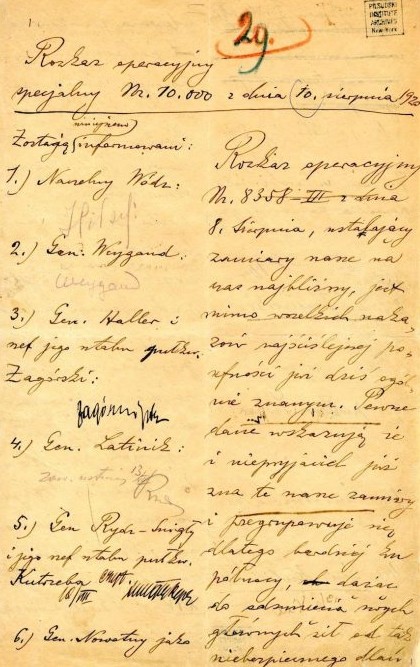 PILSUDSKI
INSTITUTE
ARCHIVES
New York
29.
Rozkaz operacyjny
specjalny Nr. 10.000 z dnia 10. sierpnia 192
niniejszem
Zostają informowani:
1.) Naczelny Wódz:
2.) Gen. Weygand:
Weygand
3.) Gen. Haller i
szef jego sztabu pułkow.
Zagórski:
Zagórski
4.) Gen. Latinik:
5.) Gen Rydz-Śmigły
i jego szef sztabu pułkow.
Kutrzeba
6.) Gen. Nowotny jako
Rozkaz operacyjny
Nr. 8358 III z dnia
8. Sierpnia, ustalający
zamiary nasze na
czas najbliższy, jest
mimo wszelkich naka
zów najściślejszej pou
fności już dziś ogól
nie znanym. Pewne
dane wskazują że
i nieprzyjaciel już
zna te nasze zamiary
i przegrupowuje się
dlatego bardziej ku
północy, dążąc
do
głównych sił od tak
niebezpiecznego dlań